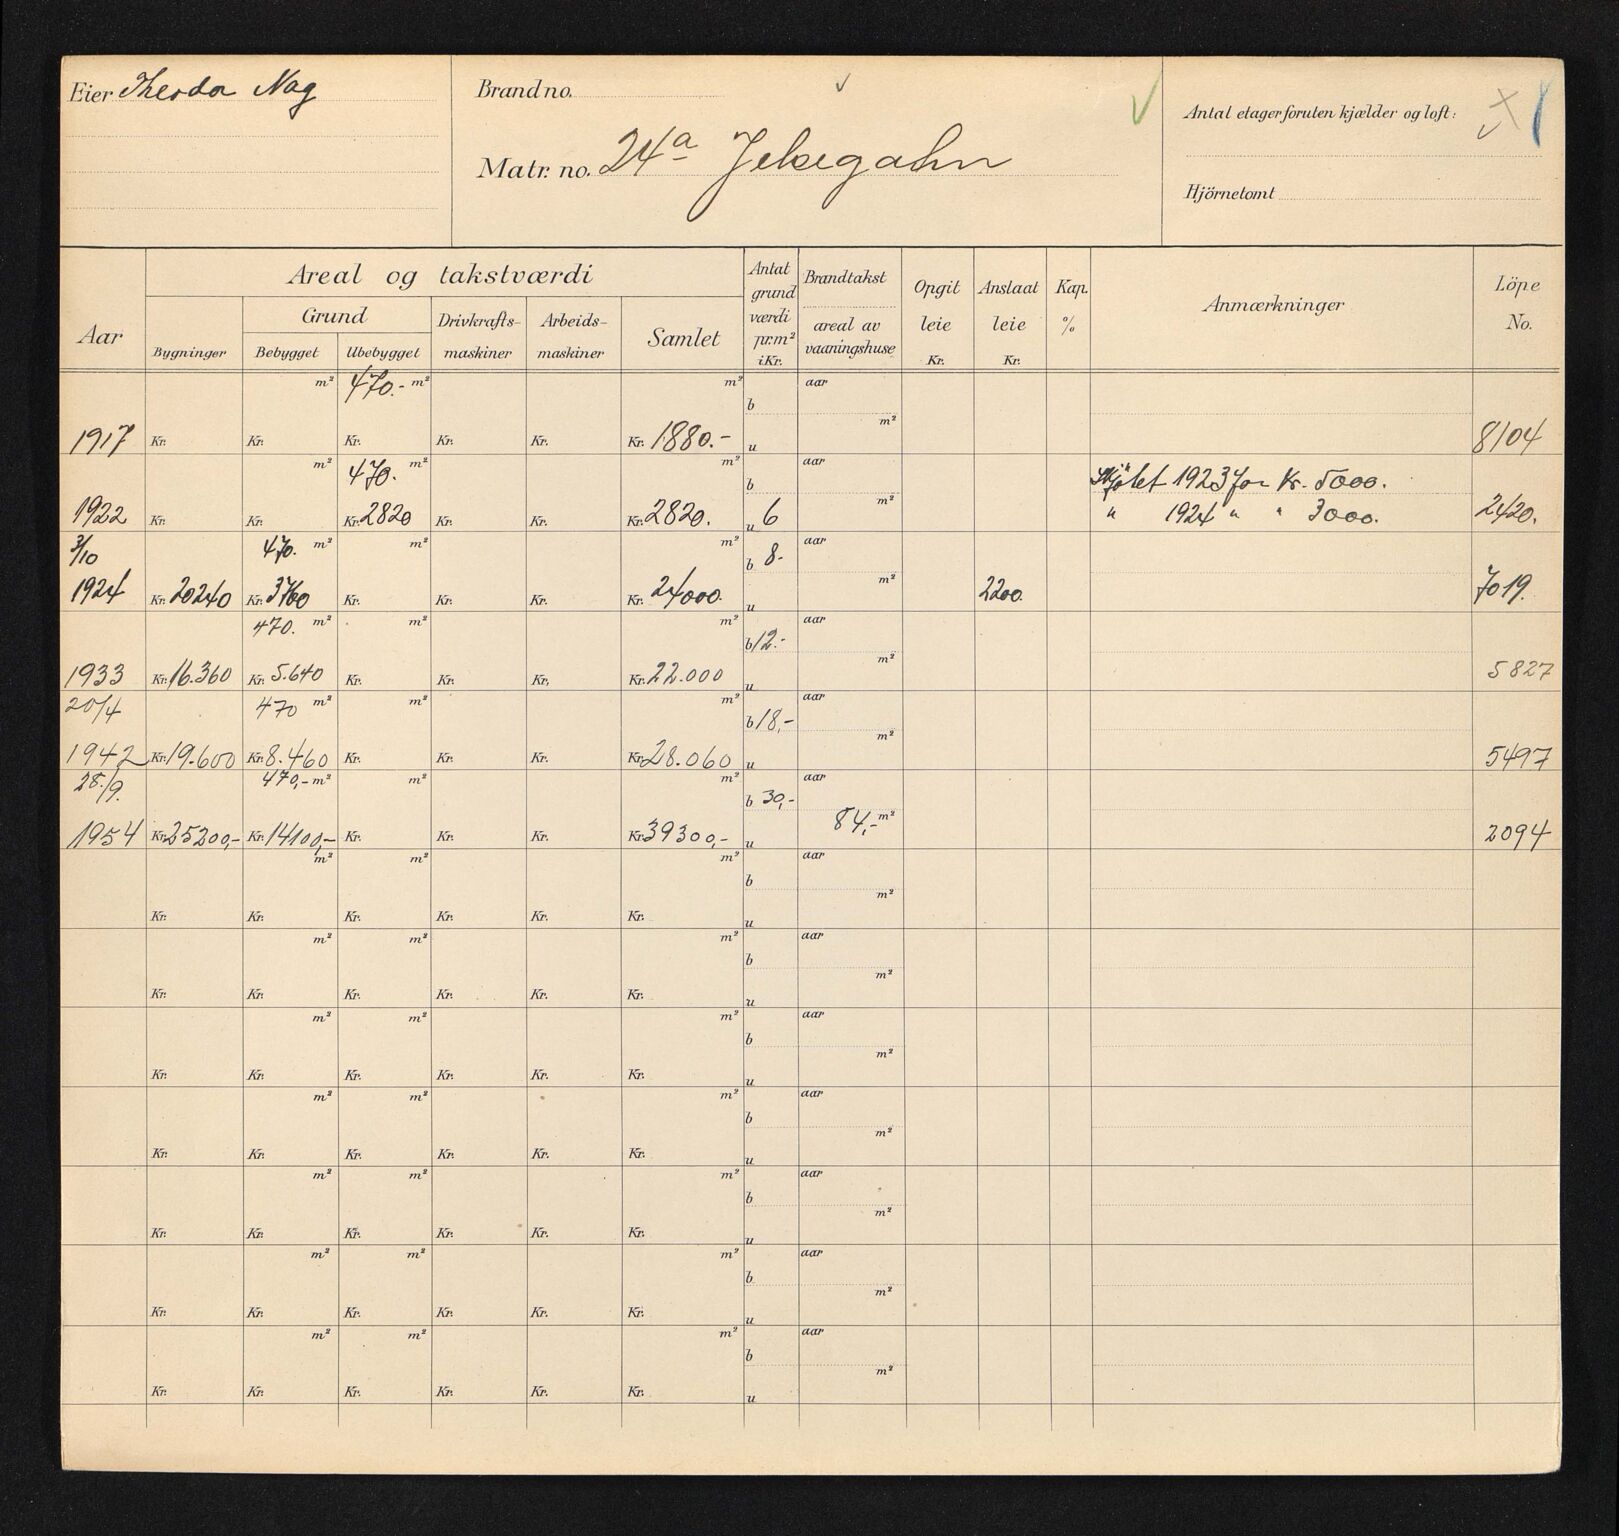 Eier Theodor Nag
Brand no.
Matr. no. 24a
Antal etager foruten kjælder og loft:
Hjörnetomt
Aar
Areal og takstværdi
Bygninger
Grund
Bebygget
Ubebygget
Drivkrafts-
maskiner
Arbeids-
maskiner
Samlet
Antat
grund
værdi
pr. m²
i Kr.
Brandtakst
areal av
vaaningshuse
Opgit
leie
Kr.
Anslaat
leie
Kr.
Kap.
%
Anmærkninger
Löpe
No.
m² 470.- m² m² aar
b
m²
1917 Kr. Kr. Kr. Kr. Kr. Kr. 1880.- u 8104
m² 470. m² m² aar
b Skjötet 1923 for Kr. 5000.
m²
1922 Kr. Kr. Kr. 2820 Kr. Kr. Kr. 2820. u 6 " 1924 " " 3000. 2420.
3/10 470. m² m² m² aar
b 8.-
m²
1924 Kr. 20240 Kr. 3760 Kr. Kr. Kr. Kr. 24000. u 2200. 7019.
470. m² m² m² aar
b 12.-
m²
1933 Kr. 16.360 Kr. 5.640 Kr. Kr. Kr. Kr. 22.000 u 5827
20/4 470 m² m² m² aar
b 18,-
m²
1942 Kr. 19.600 Kr. 8.460 Kr. Kr. Kr. Kr. 28.060 u 5497
28./9. 470,- m² m² m² aar
b 30,-
84,- m²
1954 Kr. 25200,- Kr. 14100,- Kr. Kr. Kr. Kr. 39300,- u 2094
m² m² m² aar
b
m²
Kr. Kr. Kr. Kr. Kr. Kr. u
m² m² m² aar
b
m²
Kr. Kr. Kr. Kr. Kr. Kr. u
m² m² m² aar
b
m²
Kr. Kr. Kr. Kr. Kr. Kr. u
m² m² m² aar
b
m²
Kr. Kr. Kr. Kr. Kr. Kr. u
m² m² m² aar
b
m²
Kr. Kr. Kr. Kr. Kr. Kr. u
m² m² m² aar
b
m²
Kr. Kr. Kr. Kr. Kr. Kr. u
m² m² m² aar
b
m²
Kr. Kr. Kr. Kr. Kr. Kr. u